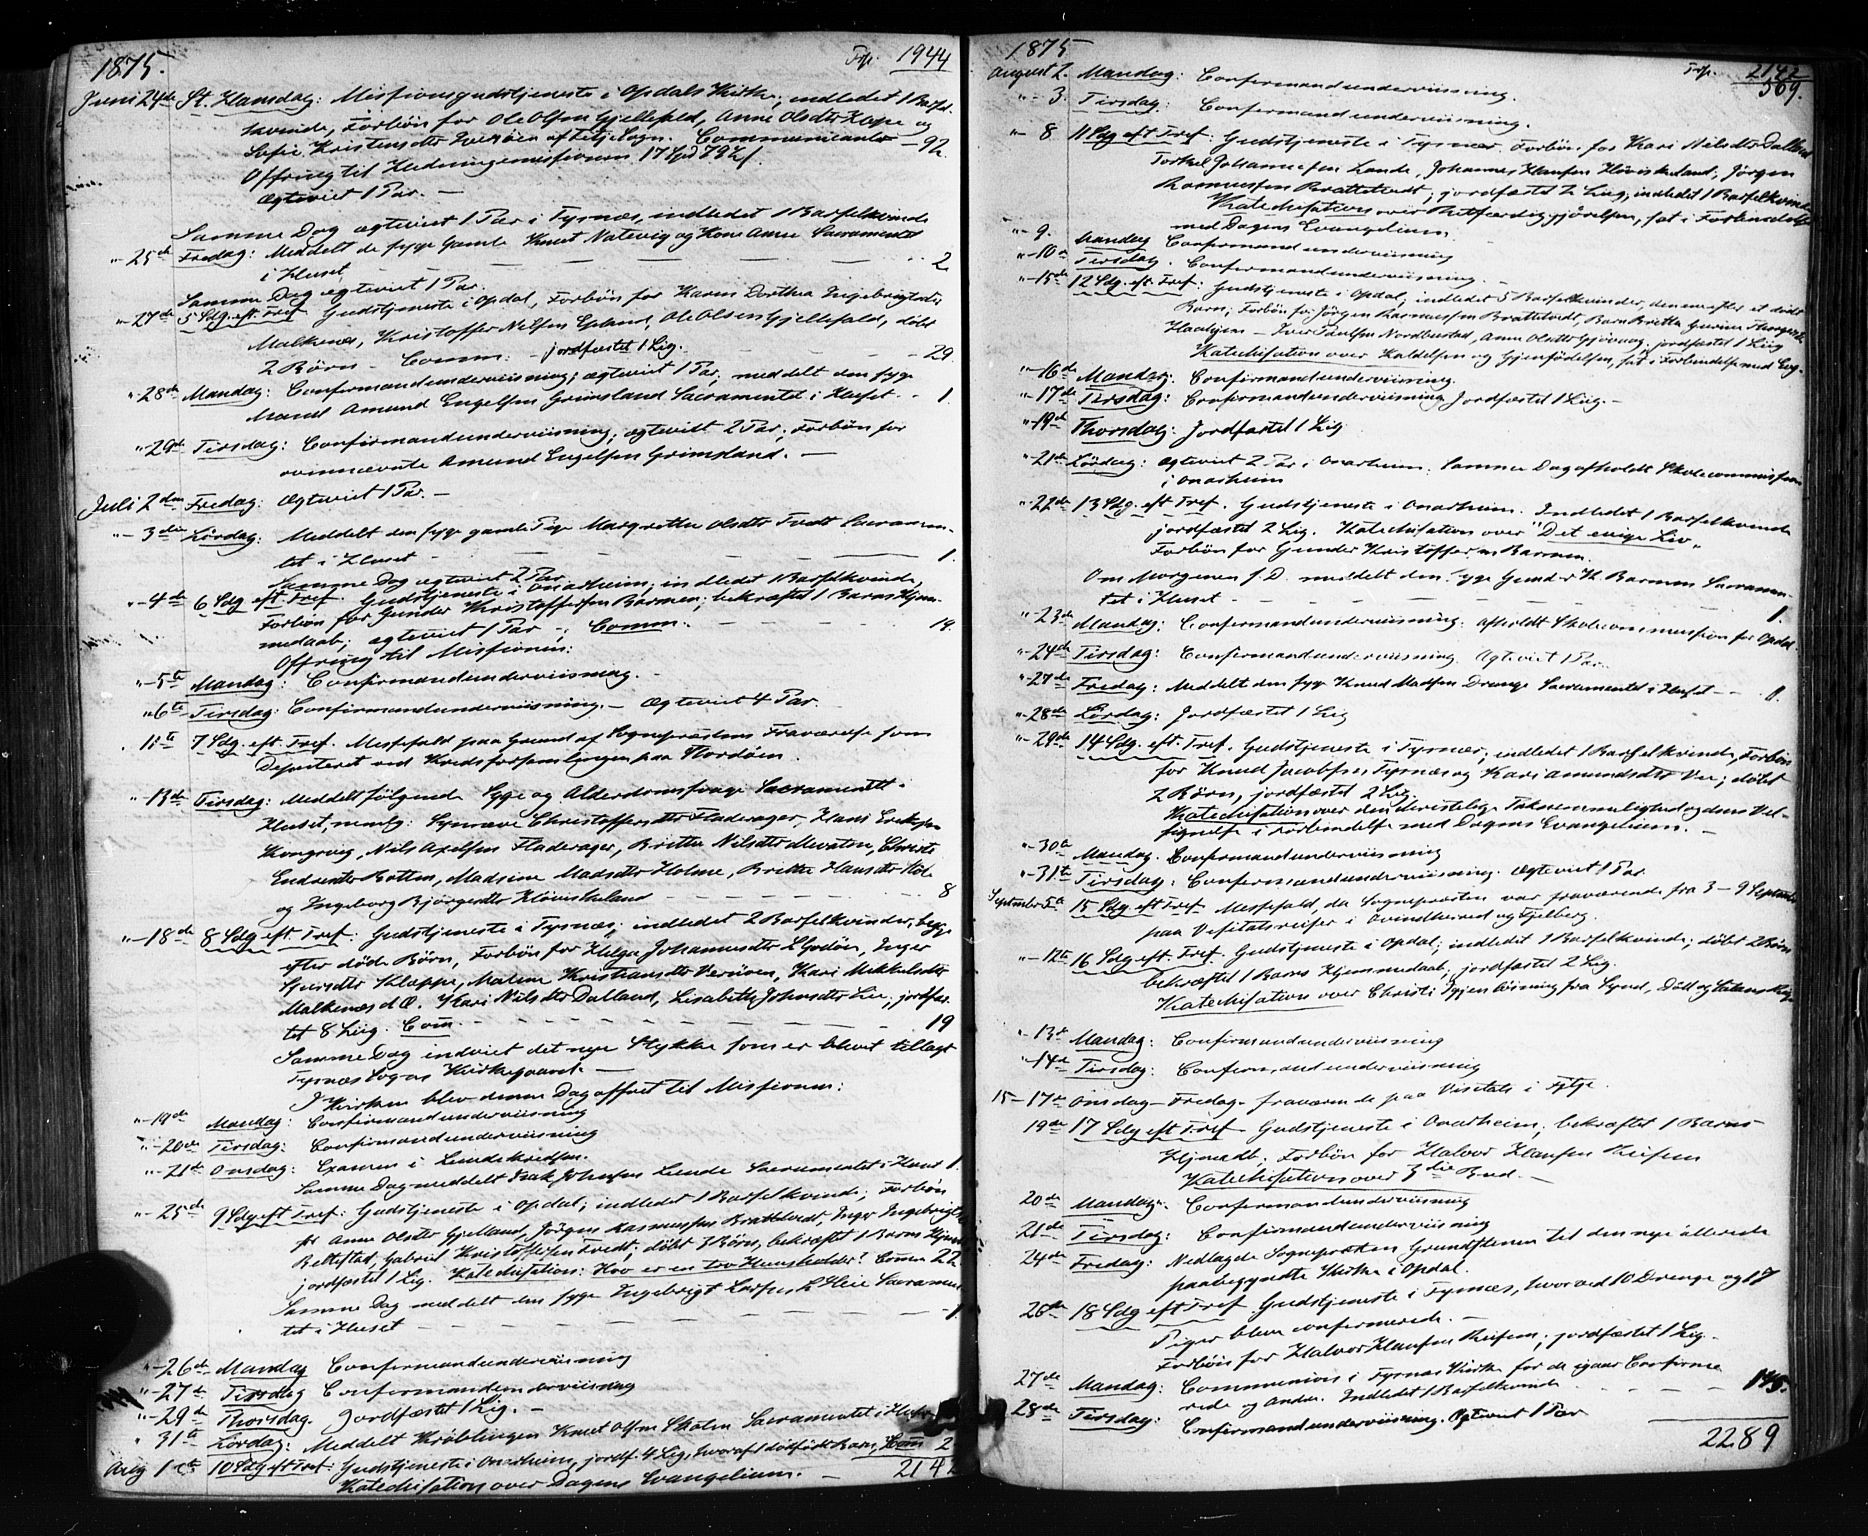 1875. Frp. 1944
Juni 24de St. Hansdag: Missionsgudstjeneste i Opdals Kirke; indledet 1 Barsel-
kvinde, Forbøn for Ole Olsen Gjellefald, Anne Olsdtr og
Sofie Kristensdtr af Fitje Sogn. Communicanter – 92.
Offring til Hedningemissionen 17 Spd
Ægteviet 1 Par. –
Samme Dag ægteviet 1 Par i Tysnæs, indledet 1 Barselkvinde
" – 25de Fredag: Meddelt de syge Gamle Knut Natevig og Kone Anna Sacramentet
i Huset – – – 2.
Samme Dag ægteviet 1 Par.
" – 27de 5 Sdg. eft. Tref. Gudstjeneste i Opdal, Forbøn for Karen Dorthea Ingebrigtsdtr
Malkenes, Kristoffer Nilsen, Ole Olsen Gjellefald, døbt
2 Børn – Comm: – jordfæstet 1 Lig. – – 29.
" – 28de Mandag: Confirmandunderviisning; ægteviet 1 Par; meddelt den syge
Mand Amund Engelsen Grimsland Sacramentet i Huset. – 1.
" – 29de Tirsdag: Confirmandunderviisning; ægteviet 2 Par; Forbøn for
ovennævnte Amund Engelsen Grimsland. –
Juli 2den Fredag: Ægteviet 1 Par. –
" – 3die Lørdag: Meddelt den syge gamle Pige Margrethe Olsdtr Tvedt Sacramen-
tet i Huset – – – 1.
Samme Dag ægteviet 2 Par
" – 4de 6 Sdg eft. Tref. Gudstjeneste i Onarheim; indledet 1 Barselkvinde,
Forbøn for Gunder Kristoffersen Barmen; bekræftet 1 Barns Hjem-
medaab; ægteviet 1 Par –; Comm. – – 19.
Offring til Missionen:
" – 5te Mandag: Confirmandunderviisning.
" 6te Tirsdag: Confirmandunderviisning. – Ægteviet 4 Par
11te 7 Sdg. eft. Tref. Messefald paa Grund af Sognepræstens Fraværelse som
Deputeret ved Kredsforsamlingen paa Stordøen.
" – 13de Tirsdag: Meddelt følgende Syge og Alderdomssvage Sacramentet i
Huset, nemlig: Synneve Christoffersdtr Fladerager, Hans Eriksen
Kongsvig, Nils Axelsen Fladerager, Brithe Nilsdtr, Christi
Endresdtr Botten, Madsine Madsdtr Holme, Brithe Hansdtr
og Ingeborg Bjørgesdtr Høviskeland – – – 8
" – 18de 8 Sdg eft. Tref: Gudstjeneste i Tysnæs; indledet 2 Barselkvinder, begge
efter døde Børn, Forbøn for Helga Johannesdtr, Inger
Sjursdtr Kleppe, Malene Kristiansdtr, Kari Mikkelsdtr
Malkenes d Æ. Kari Nilsdtr Dalland, Lisabeth Johnsdtr; jordfæs-
tet 8 Lig. Com. – – – 19
Samme Dag indviet det nye Stykke som er blevet tillagt
Tysnæs Sogns Kirkegaard. –
I Kirken blev denne Dag offret til Missionen:
" – 19de Mandag: Confirmandunderviisning
" – 20de Tirsdag: Confirmandunderviisning
" – 21de Onsdag: Examen i Lundekredsen.
Samme Dag meddelt Isak Johnsen Lunde Sacramentet i Huset 1.
" – 25de 9 Sdg eft Tref: Gudstjeneste i Opdal; indledet 1 Barselkvinde; Forbøn
for Anne Olsdtr Gjelland, Jørgen Rasmussen Brattetvedt, Inger Ingebrigtsdtr
Rettestad, Gabriel Kristoffersen Tvedt; døbt 3 Børn, bekræftet 1 Barns Hjem
jordfæstet 1 Lig. Katechisation: Hvo er en tro Huusholder? Comm 22
Samme Dag meddelt den syge Ingebrigt Larsen Sacramen
tet i Huset – – – 1.
" – 26de Mandag Confirmandunderviisning
" – 27de Tirsdag Confirmandunderviisning
" – 29de Thorsdag. Jordfæstet 1 Lig. –
" 31te Lørdag: Meddelt Krøblingen Knut Olsen Skaten Sacramentet i Huset
Aug 1ste 10 Sdg eft Tref: Gudstjeneste i Onarheim, jordf. 4 Lig, hvoraf 1 dødfødt Barn, Com 2.
Katechisation over Dagens Evangelium. – 2142
1875 Frp. 2142
569.
August 2. Mandag: Confirmandunderviisning.
" – 3. Tirsdag: Confirmandunderviisning.
" – 8 11 Sdg eft Tref: Gudstjeneste i Tysnæs. Forbøn for Kari Nilsdtr Dalland
Torkel Johannessen Lande, Johannes Hansen Høviskeland, Jørgen
Rasmussen Brattetvedt; jordfæstet 2 Lig; indledet 1 Barselkvinde
Katechisation over Retfærdiggjørelsen, sat i Forbindelse
med Dagens Evangelium.
" – 9. Mandag Confirmandunderviisning
" – 10de Tirsdag. Confirmandunderviisning.
" – 15de 12 Sdg. eft. Tref: Gudstjeneste i Opdal; indledet 5 Barselkvinder, den ene efter et dødt
Barn; Forbøn for Jørgen Rasmussen Brattetvedt, Barn Britha
– Iver Paulsen Nordbustad, Anne Olsdtr Gjøvaag. jordfæstet 1 Lig
Katechisation over Kaldelsen og Gjenfødelsen, sat i Forbindelse med Evg.
" – 16de Mandag: Confirmandunderviisning.
" – 17de Tirsdag: Confirmandunderviisning Jordfæstet 1 Lig. –
" – 19de Thorsdag: Jordfæstet 1 Lig
" – 21de Lørdag: Ægteviet 2 Par i Onarheim. Samme Dag afholdt Skolecommission
i Onarheim
" – 22de 13 Sdg. eft Tref. Gudstjeneste i Onarheim. Indledet 1 Barselkvinde
jordfæstet 2 Lig. Katechisation over "Det evige Liv"
Forbøn for Gunder Kristoffersen Barmen.
Om Morgenen s. D. meddelt den syge Gunder K. Barmen Sacramen-
tet i Huset – – – 1.
" – 23de Mandag: Confirmandunderviisning. Afholdt Skolecommission for Opdal.
" – 24de Tirsdag: Confirmandunderviisning. Ægteviet 1 Par.
" – 27de Fredag: Meddelt den syge Knud Madsen Drange Sacramentet i Huset – 1.
" – 28de Lørdag: Jordfæstet 1 Lig
" – 29de 14 Sdg. eft. Tref. Gudstjeneste i Tysnæs; indledet 1 Barselkvinde, Forbøn
for Knud Jacobsen Tysnæs og Kari Amundsdtr Vee; døbt
2 Børn, jordfæstet 2 Lig.
Katechisation over den christelige Taknemmelighed og dens Vel-
signelse i Forbindelse med Dagens Evangelium. –
" – 30te Mandag. Confirmandunderviisning
" – 31te Tirsdag: Confirmandunderviisning. Ægteviet 1 Par
September 5te 15 Sdg eft Tref Messefald, da Sognepræsten var fraværende fra 3 – 9 September
paa Visitatsreiser i Qvindherred og Fjelberg.
" – 12te 16 Sdg eft. Tref. Gudstjeneste i Opdal; indledet 1 Barselkvinde; døbt 2 Børn
bekræftet 1 Barns Hjemmedaab; jordfæstet 2 Lig.
Katechisation over Christi Igjenløsning fra Synd, Død og Satans Rige
" – 13de Mandag: Confirmandunderviisning
" 14de Tirsdag: Confirmandunderviisning
15 – 17de Onsdag – Fredag. fraværende paa Visitats i Fitje.
19de 17 Sdg eft Tref Gudstjeneste i Onarheim; bekræftet 1 Barns
Hjmdb; Forbøn for Halvor Hansen Reisen
Katechisation over 3die Bud. –
20de Mandag. Confirmandunderviisning
21de Tirsdag: Confirmandunderviisning
24de Fredag: Nedlagde Sognepræsten Grundstenen til den nye allerede
paabegyndte Kirke i Opdal.
26de 18 Sdg eft Tref Gudstjeneste i Tysnæs, hvorved 10 Drenge og 17
Piger bleve confirmerede. –
Forbøn for Halvor Hansen Reisen; jordfæstet 1 Lig.
27de Mandag: Communion i Tysnæs Kirke for de igaar Confirme
rede og Andre. Indledet 1 Barselkvinde – – 145.
28de Tirsdag: Confirmandunderviisning. Ægteviet 1 Par
2289